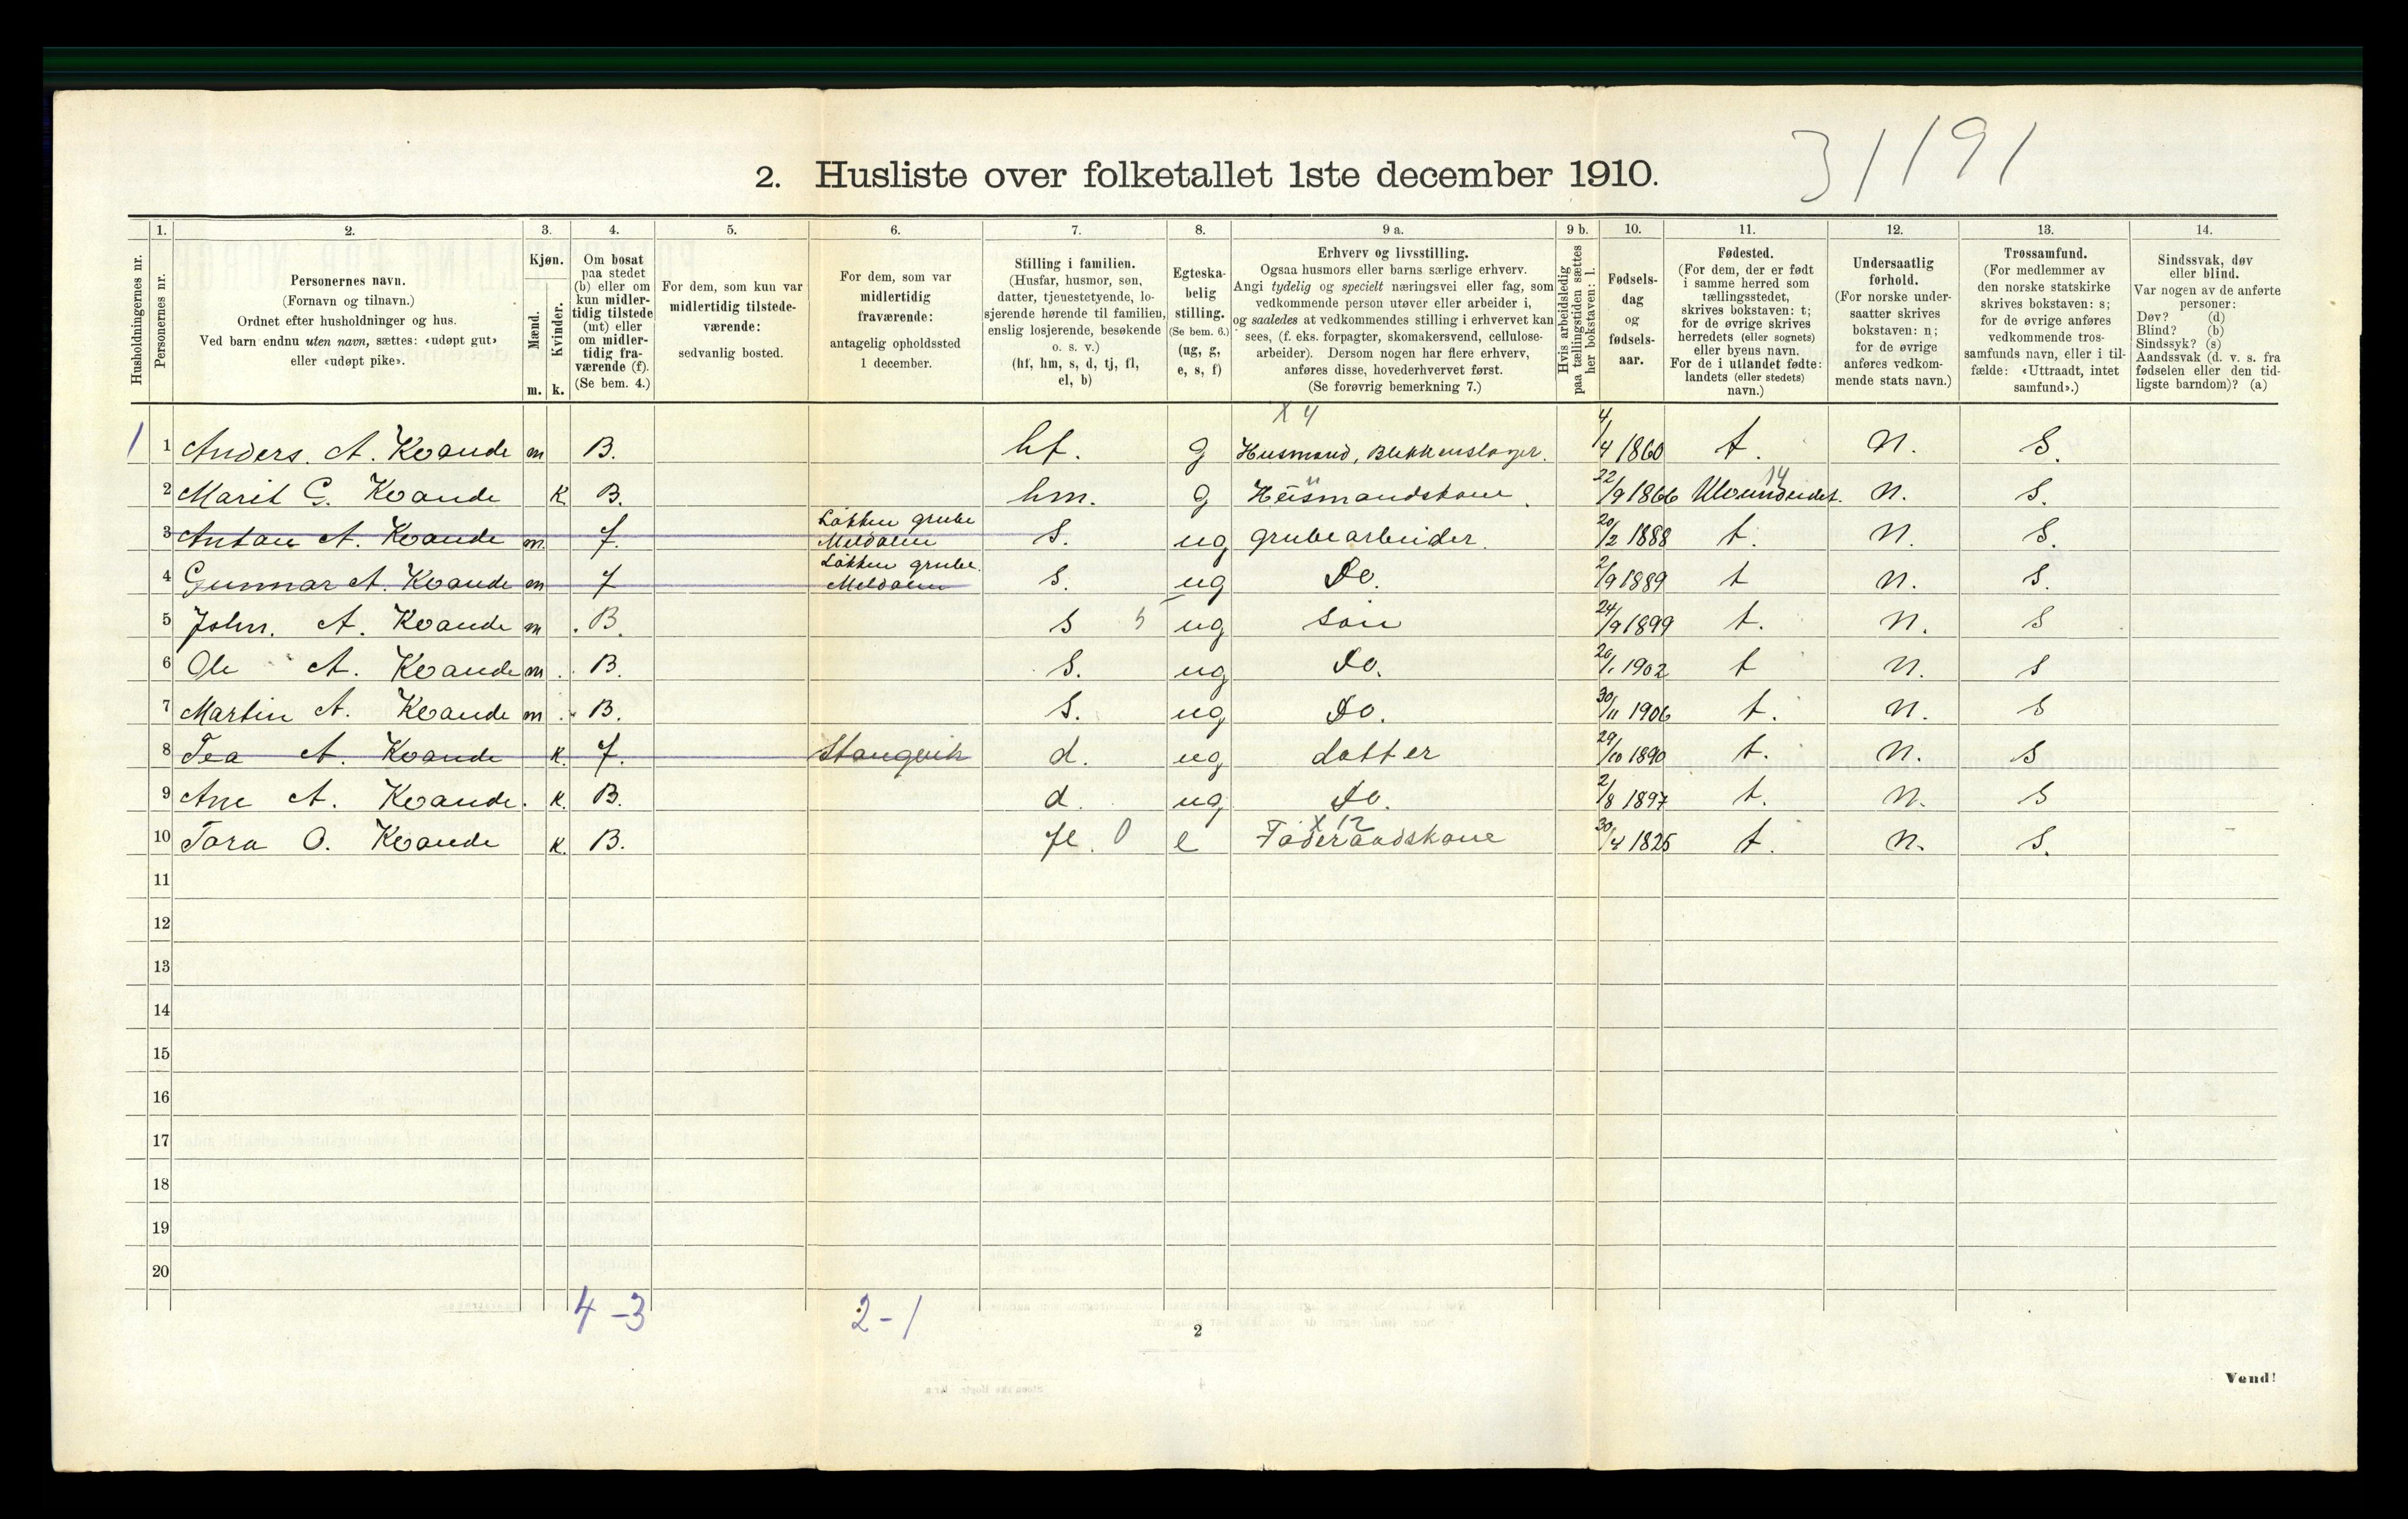 31191
2. Husliste over folketallet 1ste december 1910.
Husholdningernes nr.
1. Personernes nr.
2. Personernes navn.
(Fornavn og tilnavn.)
Ordnet efter husholdninger og hus.
Ved barn endnu uten navn, sættes: «udøpt gut»
eller «udøpt pike».
3. Kjøn.
Mænd. m.
Kvinder. k.
4. Om bosat
paa stedet
(b) eller om
kun midler-
tidig tilstede
(mt) eller
om midler-
tidig fra-
værende (f).
(Se bem. 4.)
5. For dem, som kun var
midlertidig tilstede-
værende:
sedvanlig bosted.
6. For dem, som var
midlertidig
fraværende:
antagelig opholdssted
1 december.
7. Stilling i familien.
(Husfar, husmor, søn,
datter, tjenestetyende, lo-
sjerende hørende til familien,
enslig losjerende, besøkende
o. s. v.)
(hf, hm, s, d, tj, fl,
el, b)
8. Egteska-
belig
stilling.
(Se bem. 6.)
(ug, g,
e, s, f)
9 a. Erhverv og livsstilling.
Ogsaa husmors eller barns særlige erhverv.
Angi tydelig og specielt næringsvei eller fag, som
vedkommende person utøver eller arbeider i,
og saaledes at vedkommendes stilling i erhvervet kan
sees, (f. eks. forpagter, skomakersvend, cellulose-
arbeider). Dersom nogen har flere erhverv,
anføres disse, hovederhvervet først.
(Se forøvrig bemerkning 7.)
9 b. Hvis arbeidsledig
paa tællingstiden sættes
her bokstaven: l.
10. Fødsels-
dag
og
fødsels-
aar.
11. Fødested.
(For dem, der er født
i samme herred som
tællingsstedet,
skrives bokstaven: t;
for de øvrige skrives
herredets (eller sognets)
eller byens navn.
For de i utlandet fødte:
landets (eller stedets)
navn.)
12. Undersaatlig
forhold.
(For norske under-
saatter skrives
bokstaven: n;
for de øvrige
anføres vedkom-
mende stats navn.)
13. Trossamfund.
(For medlemmer av
den norske statskirke
skrives bokstaven: s;
for de øvrige anføres
vedkommende tros-
samfunds navn, eller i til-
fælde: «Uttraadt, intet
samfund».)
14. Sindssvak, døv
eller blind.
Var nogen av de anførte
personer:
Døv? (d)
Blind? (b)
Sindssyk? (s)
Aandssvak (d. v. s. fra
fødselen eller den tid-
ligste barndom)? (a)
X 4
1 1 Anders. A. Kvande m B. hf. g Husmand, Blikkenslager. 4/4 1860 t. n. S.
14
2 Marit G. Kvande K B. hm. g Husmandskone. 22/9 1866 Ulvundeidet. n. S.
3 Antau A. Kvande m. f. Løkken grube Meldalen S. ug grubearbeider. 20/2 1888 t. n. S.
4 Gunnar A. Kvande m f Løkken grube. Meldalen S. ug Do. 2/9 1889 t n. S.
5 John. A. Kvande m B. S 5 ug søn 24/9 1899 t. n. S
6 Ole A. Kvande m B. S. ug Do. 20/1 1902 t n. S
7 Martin A. Kvande m B. S. ug Do. 30/11 1906 t. n. S
8 Tea A. Kvande K. f. Stangvik d. ug datter 29/10 1890 t. n. S
9 Ane A. Kvande. K. B. d. ug Do. 2/8 1897 t. n. S
X 12
10 Tora O. Kvande K. B. fl. 0 e Føderaadskone 30/4 1825 t. n. S.
11
12
13
14
15
16
17
18
19
20
4 - 3 2 - 1
2
Vend!